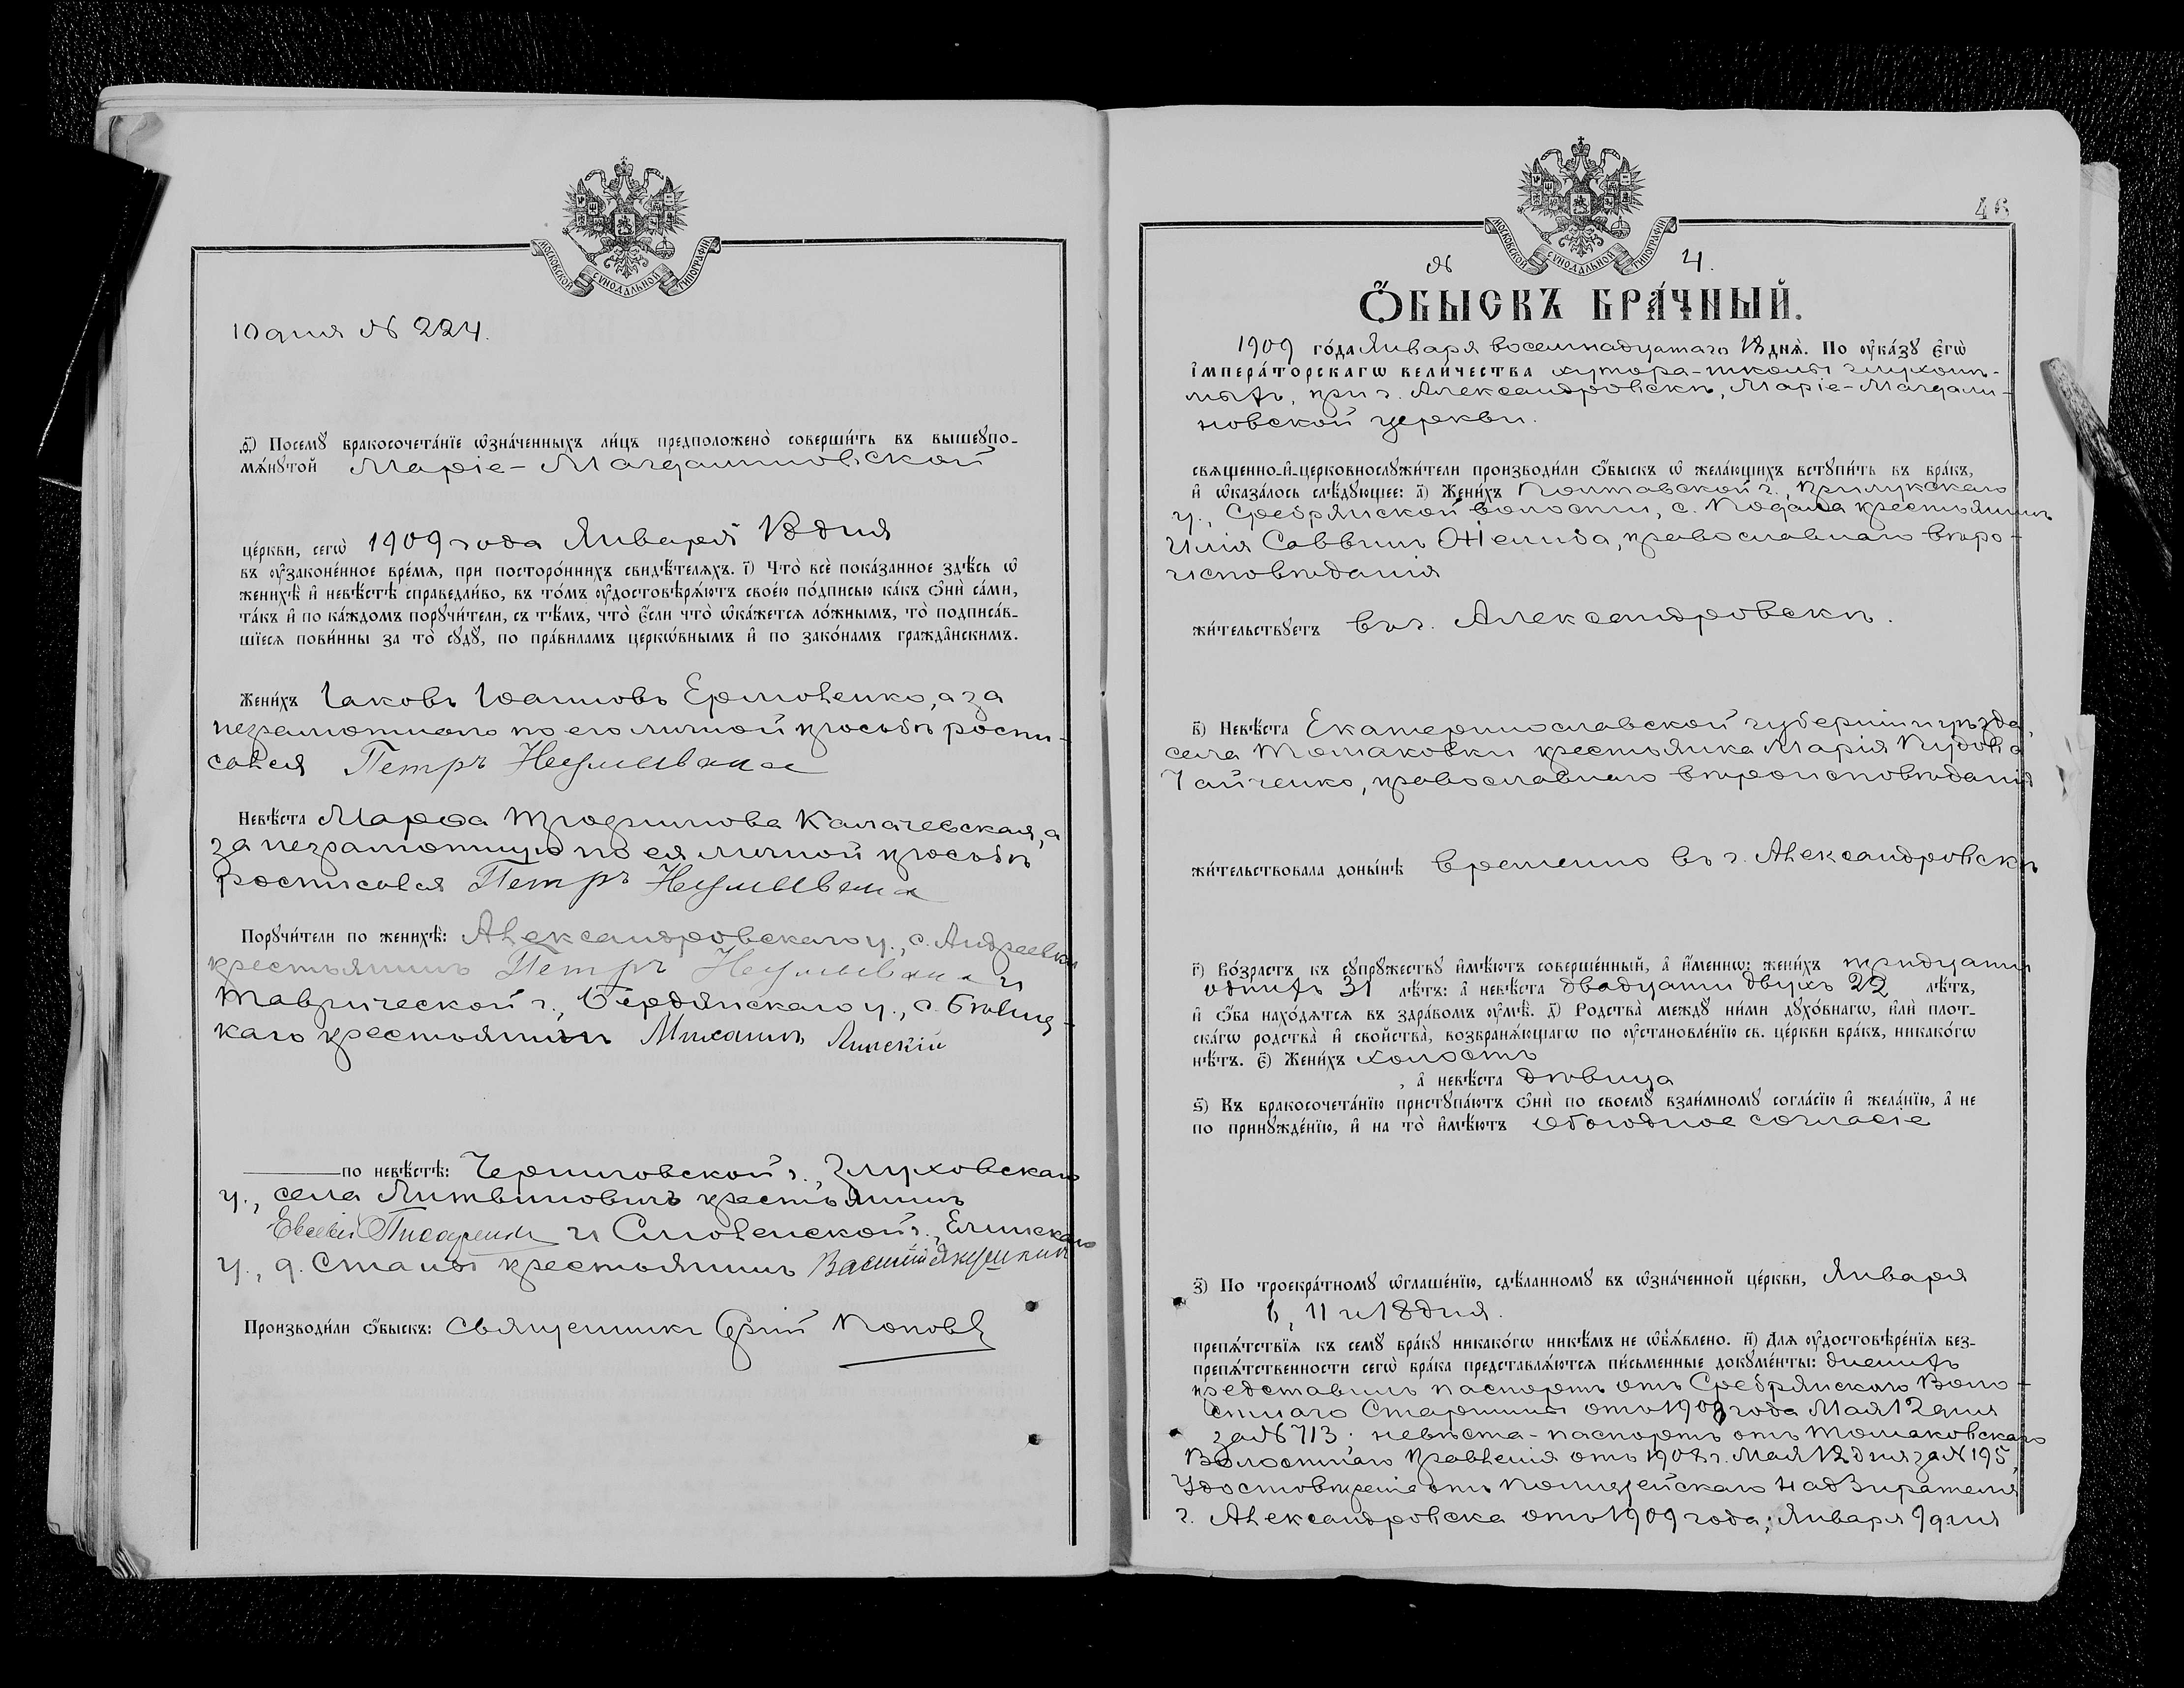 МОСКОВСКОЙ СѴНОДАЛЬНОЙ ТИПОГРАФІИ
10 дня № 224.
д҃) Посемꙋ̀ бракосочета́нїе ѡ҆зна́ченныхъ ли́цъ предположено̀ соверши́ть въ вышеꙋпо-
мѧ́нꙋтой Маріе-Магдалиновской
це́ркви, сегѡ̀ 1909 года Января 18 дня
въ ᲂу҆законе́нное вре́мѧ, при посторо́ннихъ свидѣ́телѧхъ. і҃) Что̀ всѐ пока́занное здѣ́сь ѡ҆
женихѣ̀ и҆ невѣ́стѣ справедли́во, въ то́мъ ᲂу҆достовѣрѧ́ютъ свое́ю по́дписью ка́къ ѻ҆нѝ са́ми,
та́къ и҆ по ка́ждомъ порꙋчи́тели, съ тѣ́мъ, что̀ є҆́сли что̀ ѡ҆ка́жетсѧ ло́жнымъ, то̀ подписа́в-
шїесѧ пови́нны за то̀ сꙋдꙋ̀, по пра́виламъ церкѡ́внымъ и҆ по зако́намъ гражда́нскимъ.
Жени́хъ Іаковъ Іоанновъ Ермоленко, а за
неграмотнаго по его личной просьбѣ роспи-
сался Петръ
Невѣ́ста Марѳа Трофимова Калачевская, а
за неграмотную по ея личной просьбѣ
росписался Петръ
Порꙋчи́тели по женихѣ̀: Александровскаго у., с. Андреевки
крестьянинъ Петръ и
Таврической г., Бердянскаго у., с.
каго крестьянинъ Михаилъ
по невѣ́стѣ: Черниговской г., Глуховскаго
у., села Литвиновичъ крестьянинъ
Евсевій Писаренко и Смоленской г., Ельнинскаго
у., д. крестьянинъ Василій
Производи́ли ѻ҆́быскъ: Священникъ Попов
46
МОСКОВСКОЙ СѴНОДАЛЬНОЙ ТИПОГРАФІИ
№ 4.
Ѻ҆́БЫСКЪ БРА́ЧНЫЙ.
1909 го́да Января восемнадцатаго 18 днѧ̀. По ᲂу҆ка́зꙋ є҆гѡ̀
і҆мпера́торскагѡ вели́чества хутора-школы глухонѣ-
мыхъ, при г. Александровскѣ, Маріе-Магдали-
новской церкви.
свѧщенно-и҆-церковнослꙋжи́тели производи́ли ѻ҆́быскъ ѡ҆ жела́ющихъ встꙋпи́ть въ бра́къ,
и҆ ѡ҆каза́лось слѣ́дꙋющее: а҃) Жени́хъ Полтавской г., Прилукскаго
у., Сребрянской волости, с. крестьянинъ
Илія Саввинъ православнаго вѣро-
исповѣданія
жи́тельствꙋетъ въ г. Александровскѣ.
в҃) Невѣ́ста Екатеринославской губерніи и уѣзда,
села Томаковки крестьянка Марія Пудова
Гайченко, православнаго вѣроисповѣданія
жи́тельствовала доны́нѣ временно въ г. Александровскѣ
г҃) Во́зрастъ къ сꙋпрꙋ́жествꙋ и҆мѣ́ютъ соверше́нный, а҆ и҆́меннѡ: жени́хъ тридцати
одинъ 31 лѣ́тъ: а҆ невѣ́ста двадцати двухъ 22 лѣ́тъ,
и҆ ѻ҆́ба нахо́дѧтсѧ въ здра́вомъ ᲂу҆мѣ̀. д҃) Родства̀ междꙋ ни́ми дꙋхо́внагѡ, и҆лѝ плот-
ска́гѡ родства̀ и҆ сво́йства, возбранѧ́ющагѡ по ᲂу҆становле́нїю св. це́ркви бра́къ, никако́гѡ
нѣ́тъ. є҃) Жени́хъ холостъ
, а҆ невѣ́ста дѣвица
ѕ҃) Къ бракосочета́нїю пристꙋпа́ютъ ѻ҆нѝ по своемꙋ̀ взаи́мномꙋ согла́сїю и҆ жела́нїю, а҆ не
по принꙋжде́нїю, и҆ на то̀ и҆мѣ́ютъ обоюдное согласіе
з҃) По троекра́тномꙋ ѡ҆глаше́нїю, сдѣ́ланномꙋ въ ѡ҆зна́ченной це́ркви, Января
6, 11 и 18 дня.
препѧ́тствїѧ къ семꙋ̀ бра́кꙋ никако́гѡ никѣ́мъ не ѡ҆б̾ѧ́влено. и҃) Длѧ ᲂу҆достовѣре́нїѧ без-
препѧ́тственности сегѡ̀ бра́ка представлѧ́ютсѧ пи́сьменные докꙋме́нты: женихъ
представилъ паспортъ отъ Сребрянскаго Воло-
стнаго Старшины отъ 1908 года Мая 12 дня
за № 713; невѣста - паспортъ отъ Томаковскаго
Волостнаго Правленія отъ 1908 г. Мая 12 дня за № 195,
Удостовѣреніе отъ Полицейскаго Надзирателя
г. Александровска отъ 1909 года, Января 9 дня